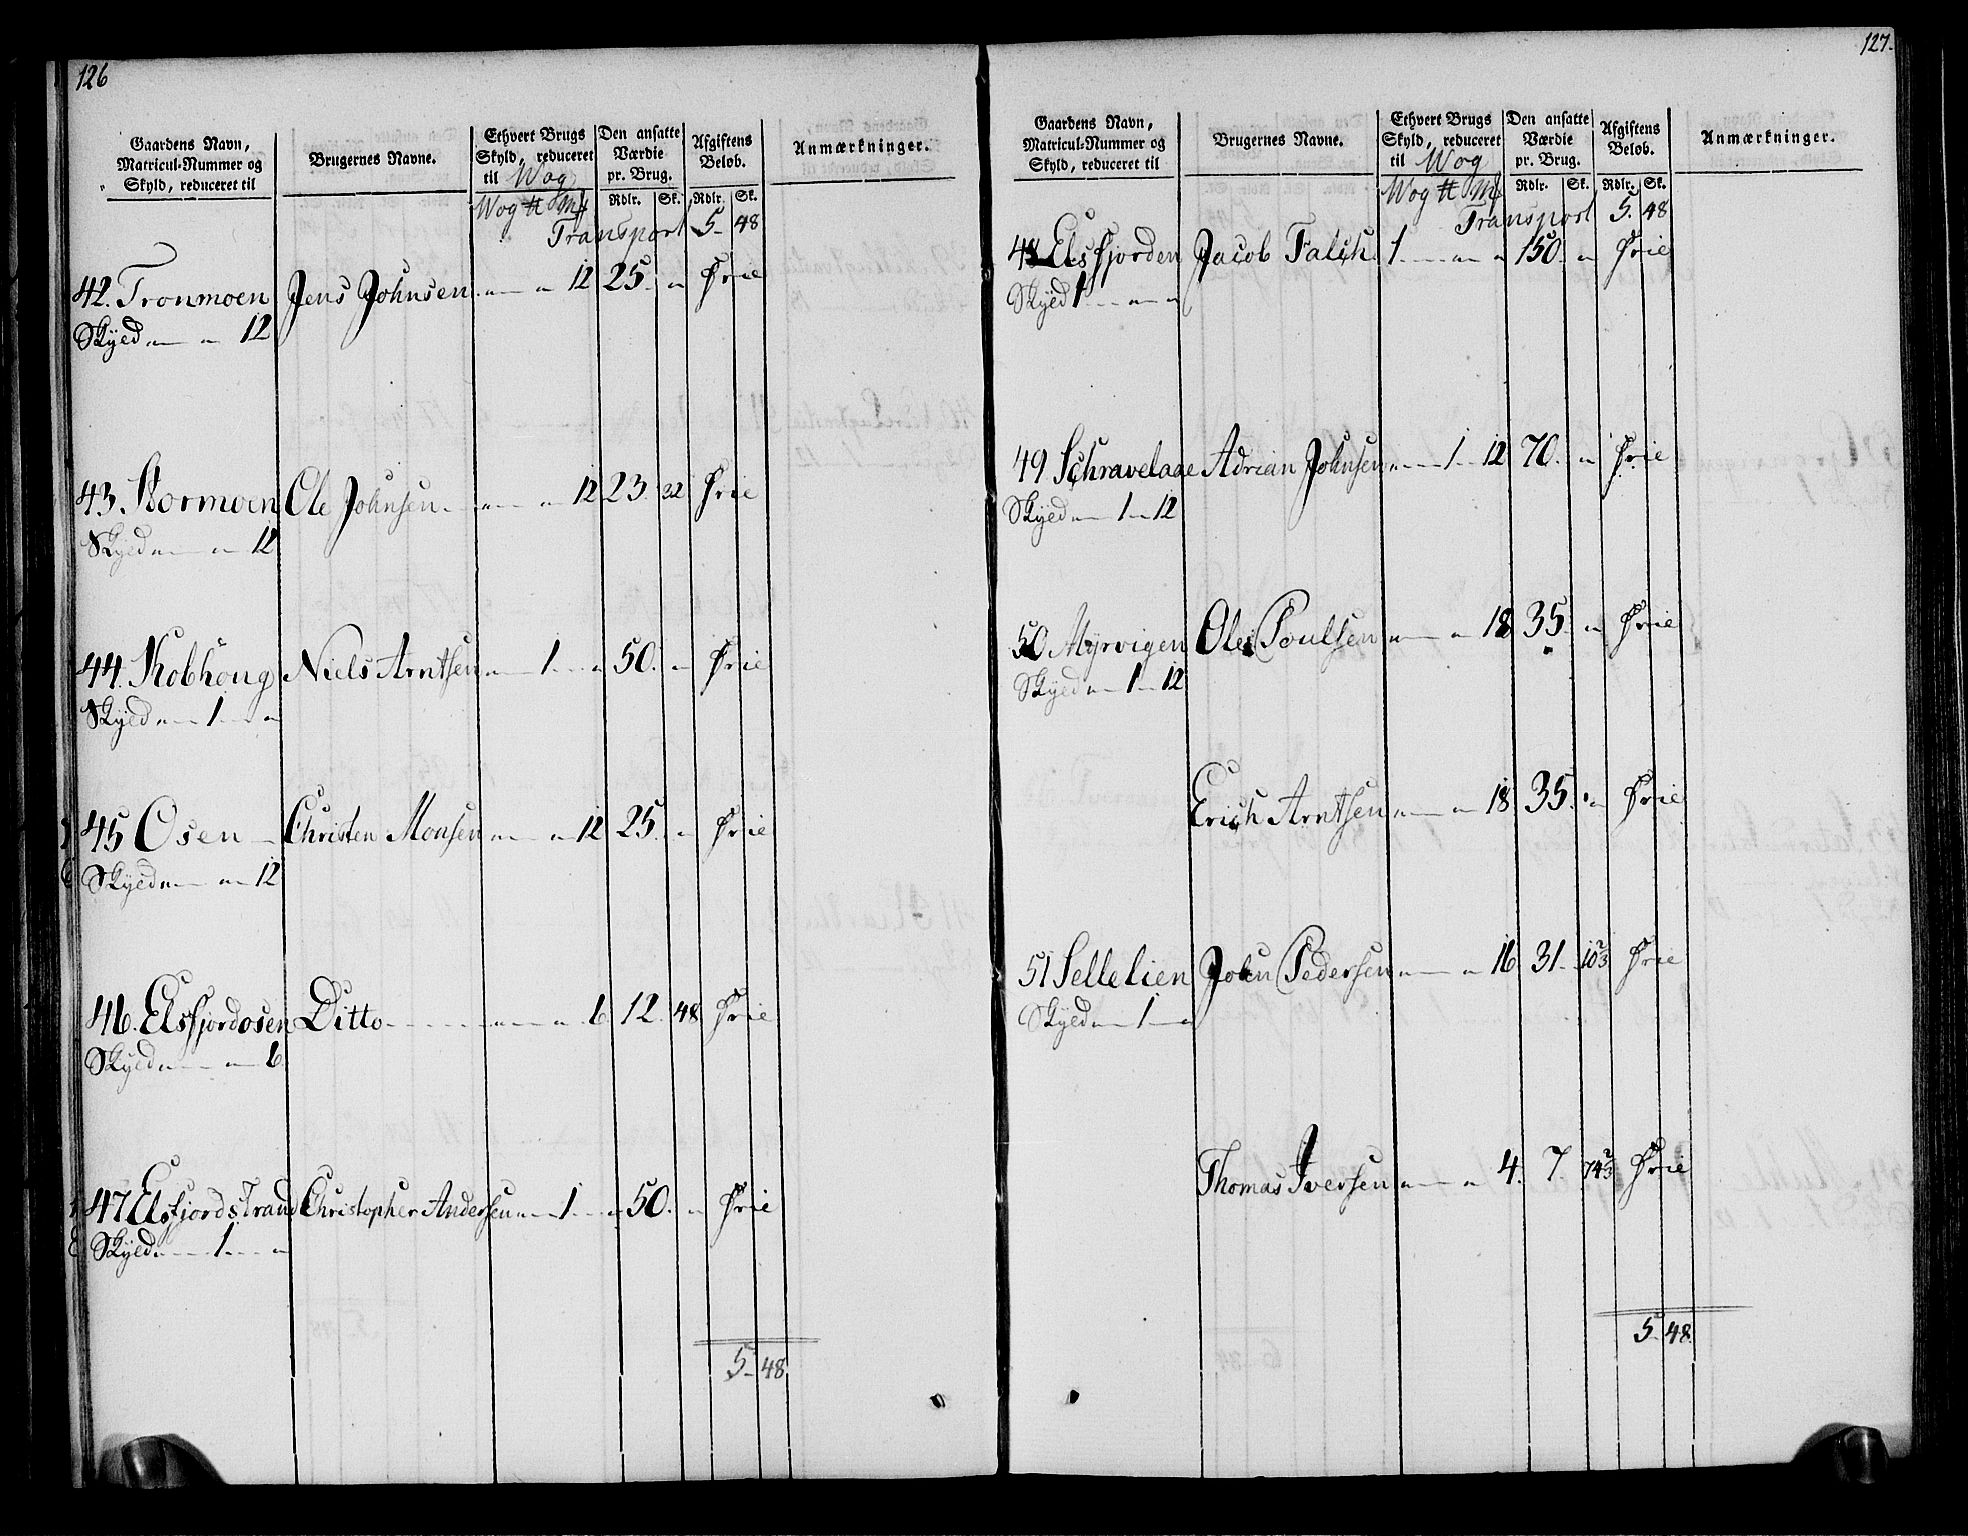 126
Gaardens Navn, Matricul-Nummer og Skyld, reduceret til
Brugernes Navne.
Ethvert Brugs Skyld, reduceret til Wog
Den ansatte Værdie pr. Brug.
Afgiftens Beløb.
Anmærkninger.
Wog ℔ Mk Rdlr. Sk. Rdlr. Sk.
Transport 5 - 48
42. Tronmoen Jens Johnsen 12 25. Frie
Skyld 12
43. Stormoen Ole Johnsen 12 23. 32 Frie
Skyld 12
44. Kobhoug Niels Arntsen 1 50. Frie
Skyld 1
45 Osen Christen Monsen 12 25. Frie
Skyld 12
46. Elsfjordosen Ditto 6 12. 48 Frie
Skyld 6
47 Elsfjordstrand Christopher Andersen 1 50. Frie
Skyld 1
5 - 48
127.
Gaardens Navn, Matricul-Nummer og Skyld, reduceret til
Brugernes Navne.
Ethvert Brugs Skyld, reduceret til Wog
Den ansatte Værdie pr. Brug.
Afgiftens Beløb.
Anmærkninger.
Wog ℔ Mk Rdlr. Sk. Rdlr. Sk.
Transport 5. 48
48 Elsfjorden Jacob Falch 1 150. Frie
Skyld 1
49 Schravelaae Adrian Johnsen 1 12 70. Frie
Skyld 1 12
50 Myrvigen Ole Poulsen 18 35. Frie
Skyld 1 12
Erich Arntsen 18 35. Frie
51 Sellelien John Pedersen 16 31. 10⅔ Frie
Skyld 1
Thomas Iversen 4. 7 74⅔ Frie
5 48